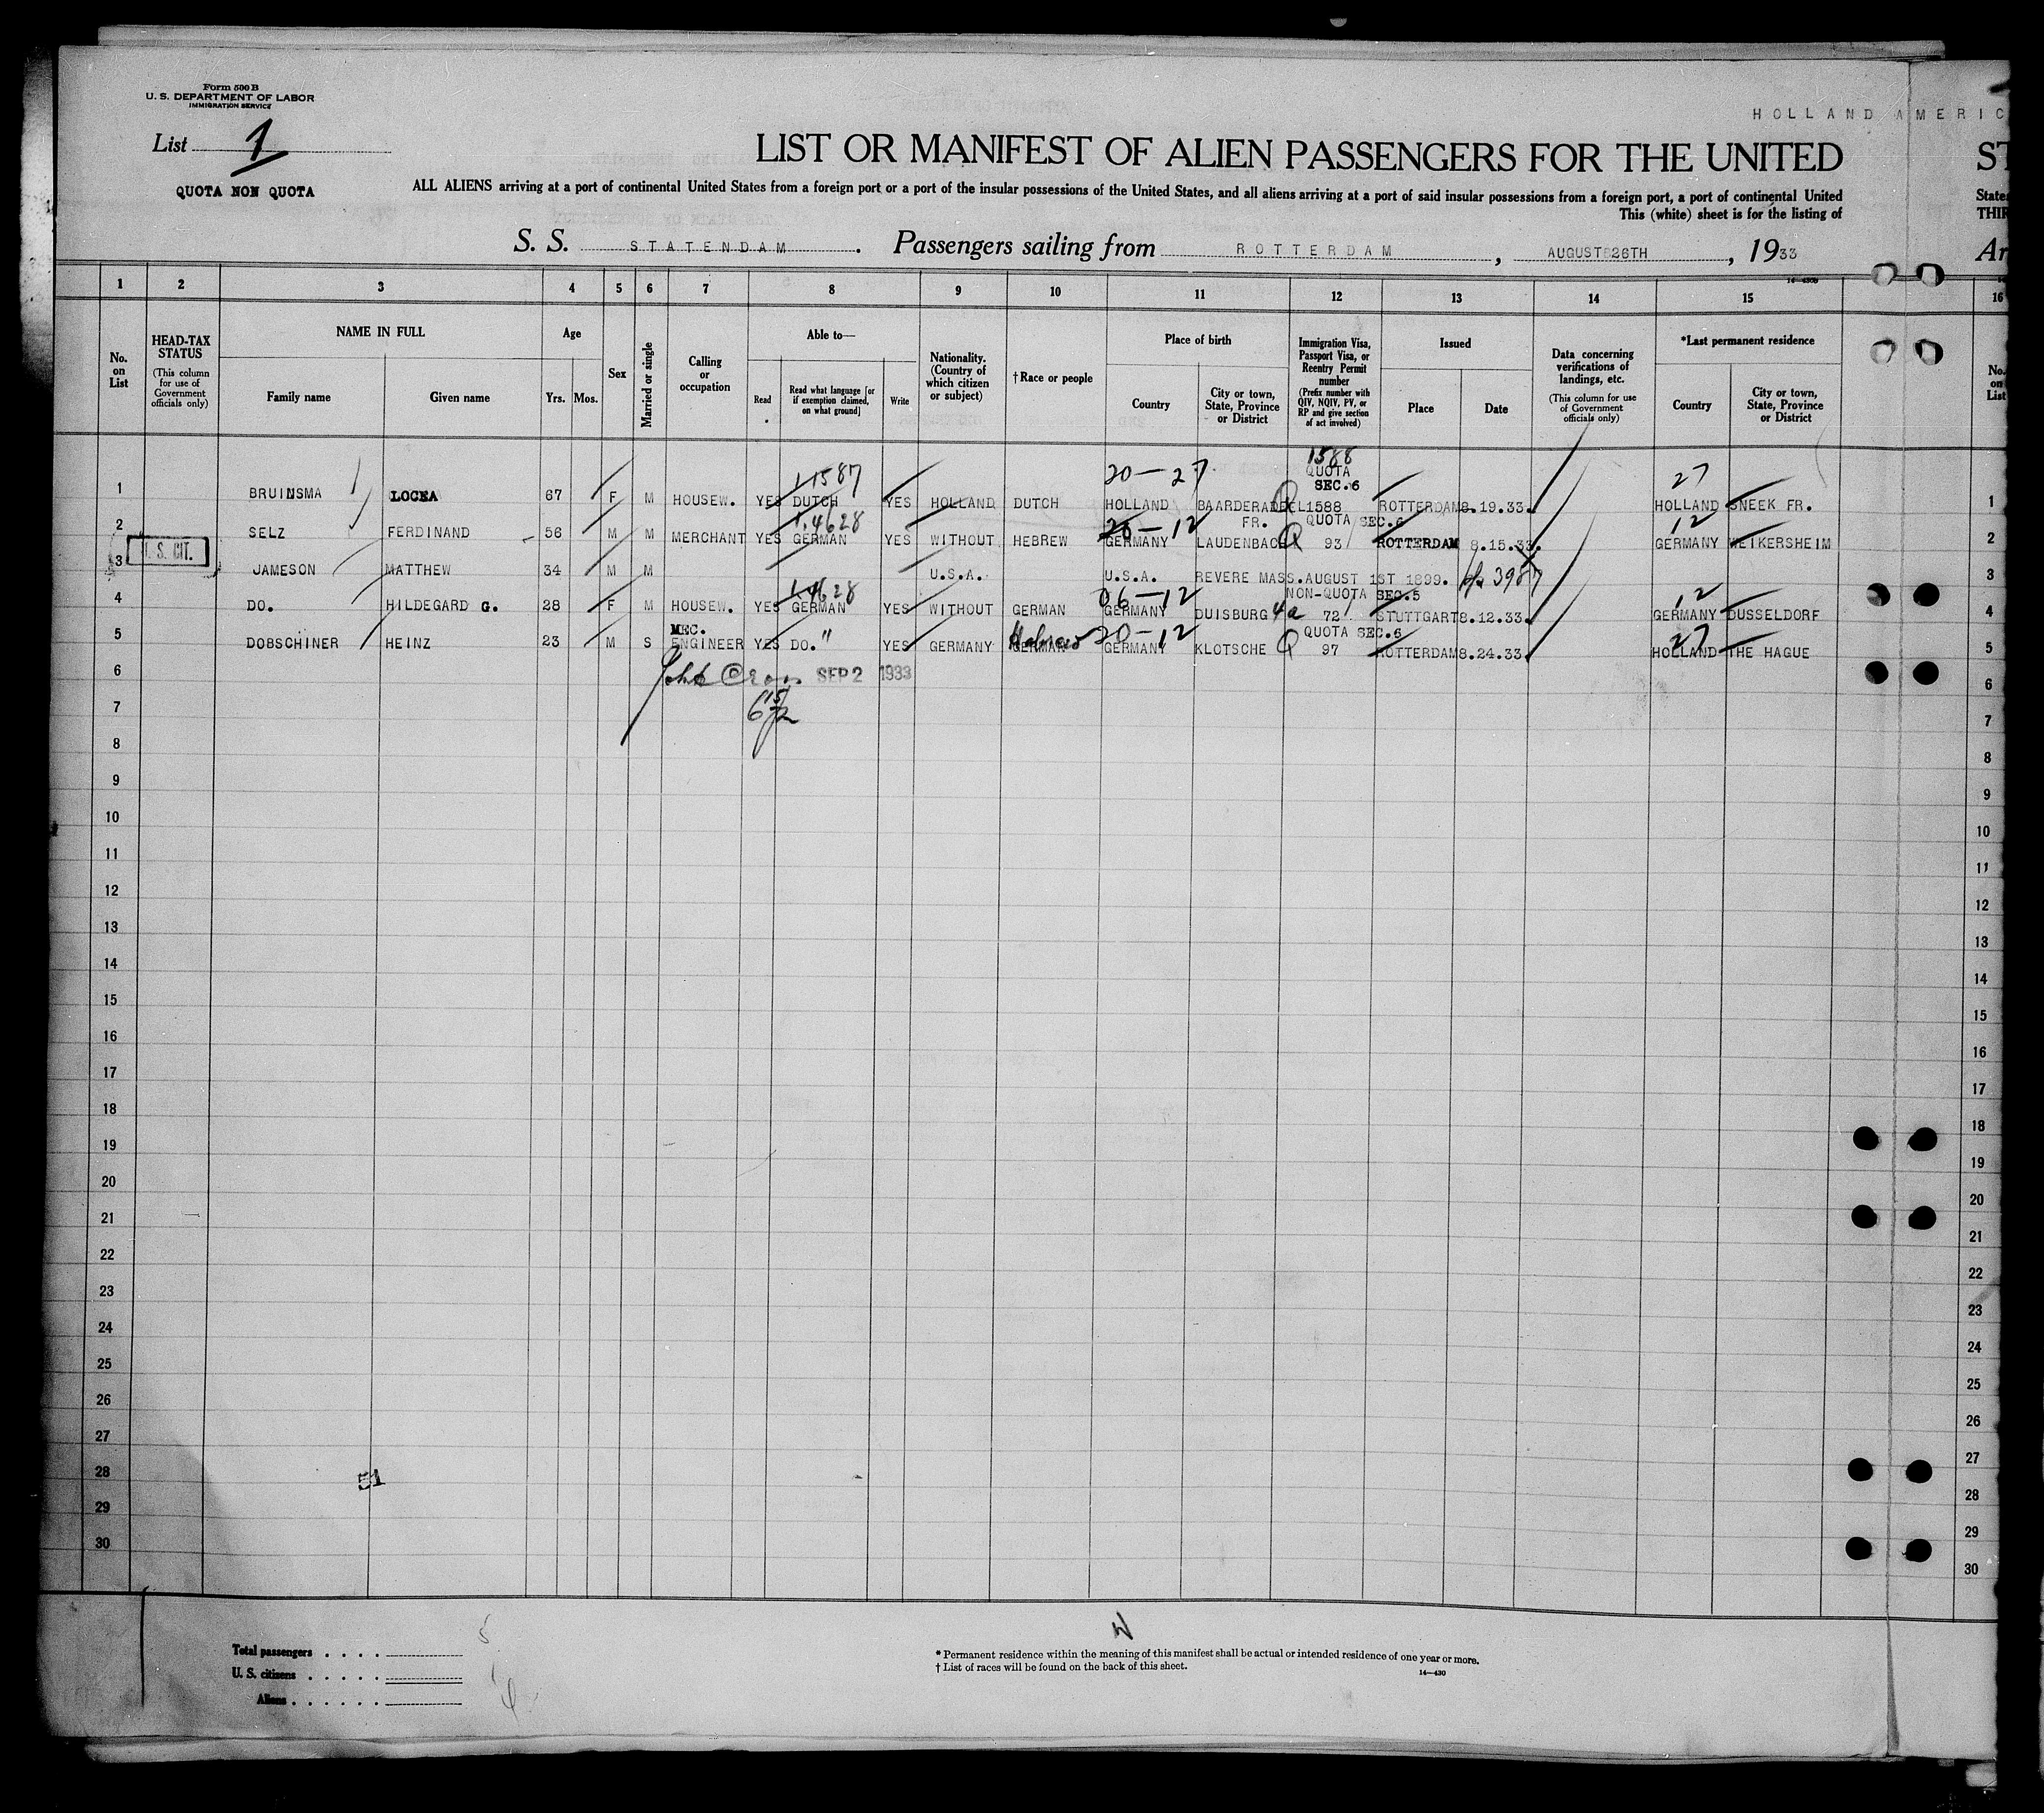 Form 500 B
U. S. DEPARTMENT OF LABOR
IMMIGRATION SERVICE
HOLLAND AMERIC
List 1
LIST OR MANIFEST OF ALIEN PASSENGERS FOR THE UNITED ST
QUOTA NON QUOTA
ALL ALIENS arriving at a port of continental United States from a foreign port or a port of the insular possessions of the United States, and all aliens arriving at a port of said insular possessions from a foreign port, a port of continental United States
This (white) sheet is for the listing of THIR
S. S. STATENDAM. Passengers sailing from ROTTERDAM, AUGUST 26TH, 1933 Ar
1 2 3 4 5 6 7 8 9 10 11 12 13 14 15 16
No. on List
HEAD-TAX STATUS
(This column for use of Government officials only)
NAME IN FULL
Family name Given name
Age
Yrs. Mos.
Sex
Married or single
Calling or occupation
Able to—
Read
Read what language [or if exemption claimed, on what ground]
Write
Nationality. (Country of which citizen or subject)
†Race or people
Place of birth
Country
City or town, State, Province or District
Immigration Visa, Passport Visa, or Reentry Permit number
(Prefix number with QIV, NQIV, PV, or RP and give section of act involved)
Issued
Place Date
Data concerning verifications of landings, etc.
(This column for use of Government officials only)
*Last permanent residence
Country
City or town, State, Province or District
No. on List
1587 20—27 1588 QUOTA SEC.6 27
1 BRUINSMA 67 F M HOUSEW. YES DUTCH YES HOLLAND DUTCH HOLLAND BAARDERADEEL Q 1588 ROTTERDAM 8.19.33. HOLLAND SNEEK FR. 1
4628 20—12 FR. QUOTA SEC.6 12
2 SELZ FERDINAND 56 M M MERCHANT YES GERMAN YES WITHOUT HEBREW GERMANY LAUDENBACH Q 93 ROTTERDAM 8.15.33. GERMANY WEIKERSHEIM 2
U. S. CIT.
3 JAMESON MATTHEW 34 M M U.S.A. U.S.A. REVERE MASS. AUGUST 1ST 1899. 3987 3
4628 06—12 NON-QUOTA SEC.5 12
4 DO. HILDEGARD G. 28 F M HOUSEW. YES GERMAN YES WITHOUT GERMAN GERMANY DUISBURG 4a 72 STUTTGART 8.12.33. GERMANY DUSSELDORF 4
MEC. Hebrew 20—12 QUOTA SEC.6 27
5 DOBSCHINER HEINZ 23 M S ENGINEER YES DO." YES GERMANY GERMAN GERMANY KLOTSCHE Q 97 ROTTERDAM 8.24.33. HOLLAND THE HAGUE 5
6 SEP 2 1933 6
7 7
8 8
9 9
10 10
11 11
12 12
13 13
14 14
15 15
16 16
17 17
18 18
19 19
20 20
21 21
22 22
23 23
24 24
25 25
26 26
27 27
28 51 28
29 29
30 30
Total passengers . . . . 5
U. S. citizens . . . . . 1
Aliens . . . . . . 4
* Permanent residence within the meaning of this manifest shall be actual or intended residence of one year or more.
† List of races will be found on the back of this sheet.
14—430